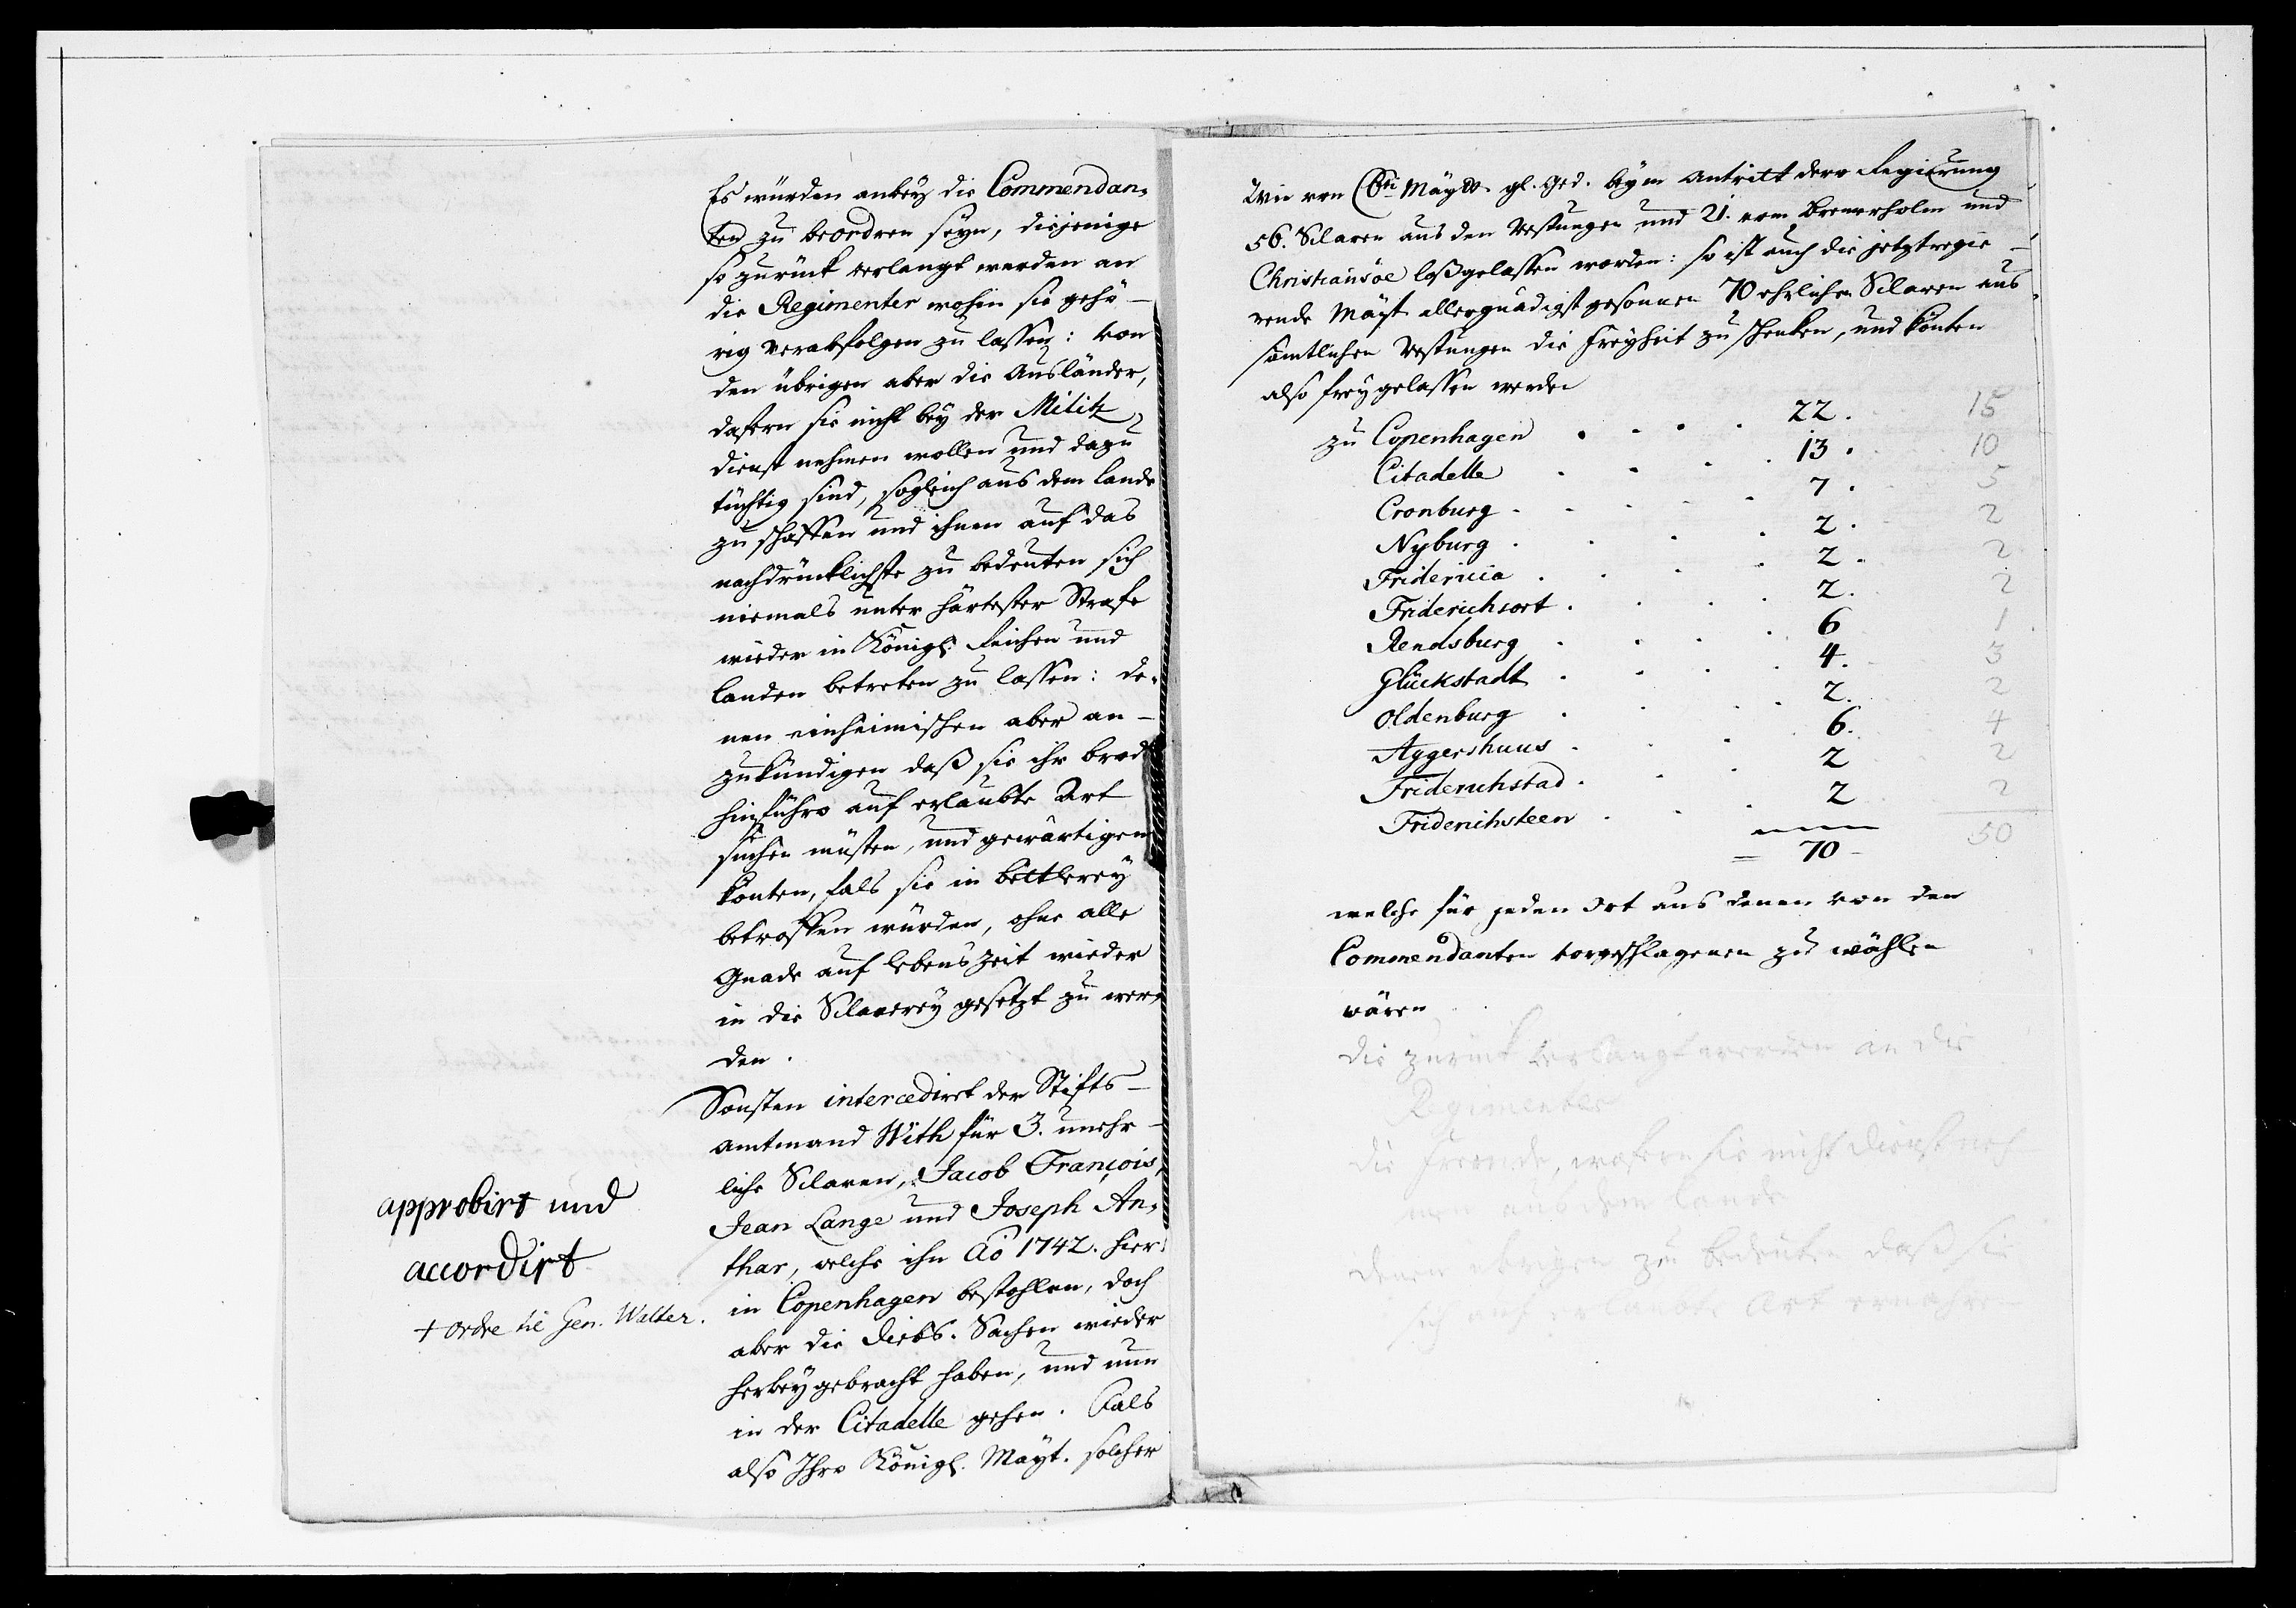 Es würden anbey die Commendan-
ten zu beordren seyn, diejenige
so zurück verlangt werden an
die Regimenter wohin sie gehö-
rig verabfolgen zu lassen: von
den übrigen aber die Ausländer,
dafern sie nicht bey der Militz
dienst nehmen wollen und dazu
tüchtig sind, sogleich aus dem Lande
zu schaffen und ihnen auf das
nachdrücklichste zu bedeuten sich
niemals unter härtester Strafe
wieder in Königl. Reichen und
Landen betreten zu lassen: de-
nen einheimischen aber an-
zukündigen daß sie ihr brod
hinführo auf erlaubte Art
suchen müsten, und gewärtigen
konten, fals sie in bettlerey
betroffen würden, ohne alle
Gnade auf lebenszeit wieder
in die Sclaverey gesetzt zu wer-
den.
Sonsten intercedirt der Stifts-
amtmand With für 3. unehr-
liche Sclaven, Jacob François,
Jean Lange und Joseph An-
thar, welche ihn Aō 1742. hier
in Copenhagen bestohlen, doch
aber die Diebs-Sachen wieder
herbeygebracht haben, und nun
in der Citadelle gehen. Fals
also Ihro Königl. Mayt. solcher
approbirt und
accordirt
+ ordre til Gen. Walter.
Wie von Chr. 6ti Mayt. gl. Ged. beym Antritt dero Regierung
56. Sclaven aus den Vestungen und 21. vom Bremerholm und
Christiansöe loßgelassen worden: so ist auch die jetztregie-
rende Mayt. allergnädigst gesonnen 70 ehrlichen Sclaven aus
sämtlichen Vestungen die Freyheit zu schenken, und konten
also frey gelassen werden
zu Copenhagen . . . . 22. 15
Citadelle . . . . 13. 10
Cronburg . . . . 7. 5
Nyburg . . . . 2. 2
Fridericia . . . . 2. 2
Friderichsort . . . . 2. 2
Rendsburg . . . . 6 1
Glückstadt . . . . 4. 3
Oldenburg . . . . 2. 2
Aggershuus . . . . 6. 4
Friderichstad . . . . 2 2
Friderichsteen . . . . 2 2
= 70 - 50
welche für jeden Ort aus denen von den
Commendanten vorgeschlagenen zu wählen
wären
die zurück verlangt werden an die
Regimenter
die Fremde, wofern sie nicht dienst neh
men aus dem Lande
denen übrigen zu bedeuten daß sie
sich auf erlaubte Art ernähren